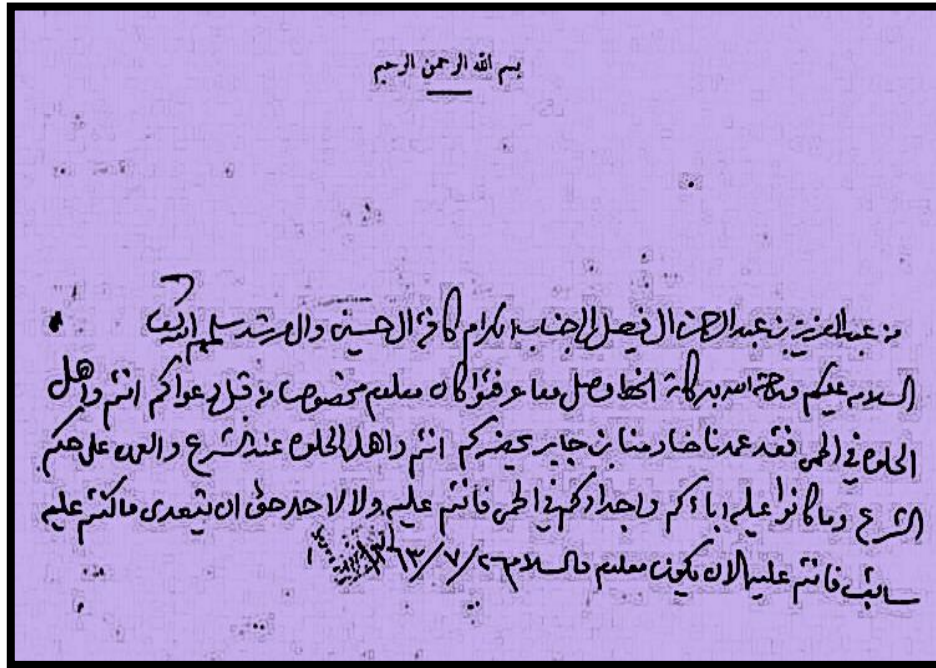 بسم الله الرحمن الرحيم
من عبد العزيز بن عبد الرحمن ال فيصل الى جناب الكرام كافة ال حسين وال مرشد سلمهم الله تعالى
السلام عليكم ورحمة الله وبركاته الخط وصل وما عرفتوا كان معلوم مخصوصا من قبل دعواكم انتم واهل
الحلوه في الحمى فقد عمدنا خادمنا بن جابر يحضركم انتم واهل الحلوه عند الشرع والعمل على حكم
الشرع وما كانوا عليه اباءكم واجدادكم في الحمى فانتم عليه ولا لاحد حق ان يتعدى ما كنتم عليه
سابق فانتم عليه الان يكون معلوم والسلام ٢٦/٧/٦٣